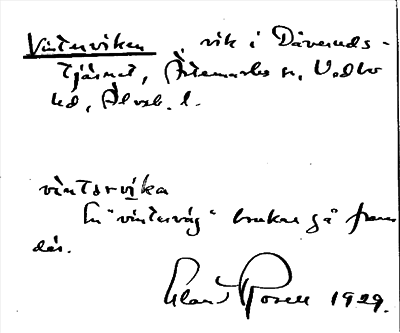 Vinterviken, vik i Däveruds-
tjärnet, Ärtemarks sn, Vedbo
hd, Älvsb. l.
vintərvika
En "vinterväg" brukar gå fram
där.
Elant Rosell 1929.